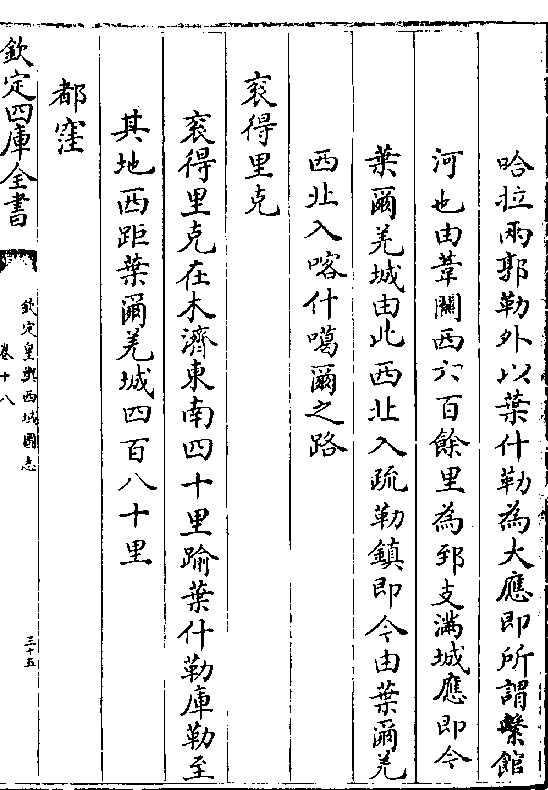 哈拉兩郭勒外以葉什勒為大應即所謂繫館
河也由葦關西六百餘里為郅支滿城應即今
葉爾羌城由此西北入疏勒鎮即今由葉爾羌
西北入喀什噶爾之路
袞得里克
袞得里克在木濟東南四十里踰葉什勒庫勒至
其地西距葉爾羌城四百八十里
都窪
欽定四庫全書
欽定皇輿西域圖志
卷十八
三十五